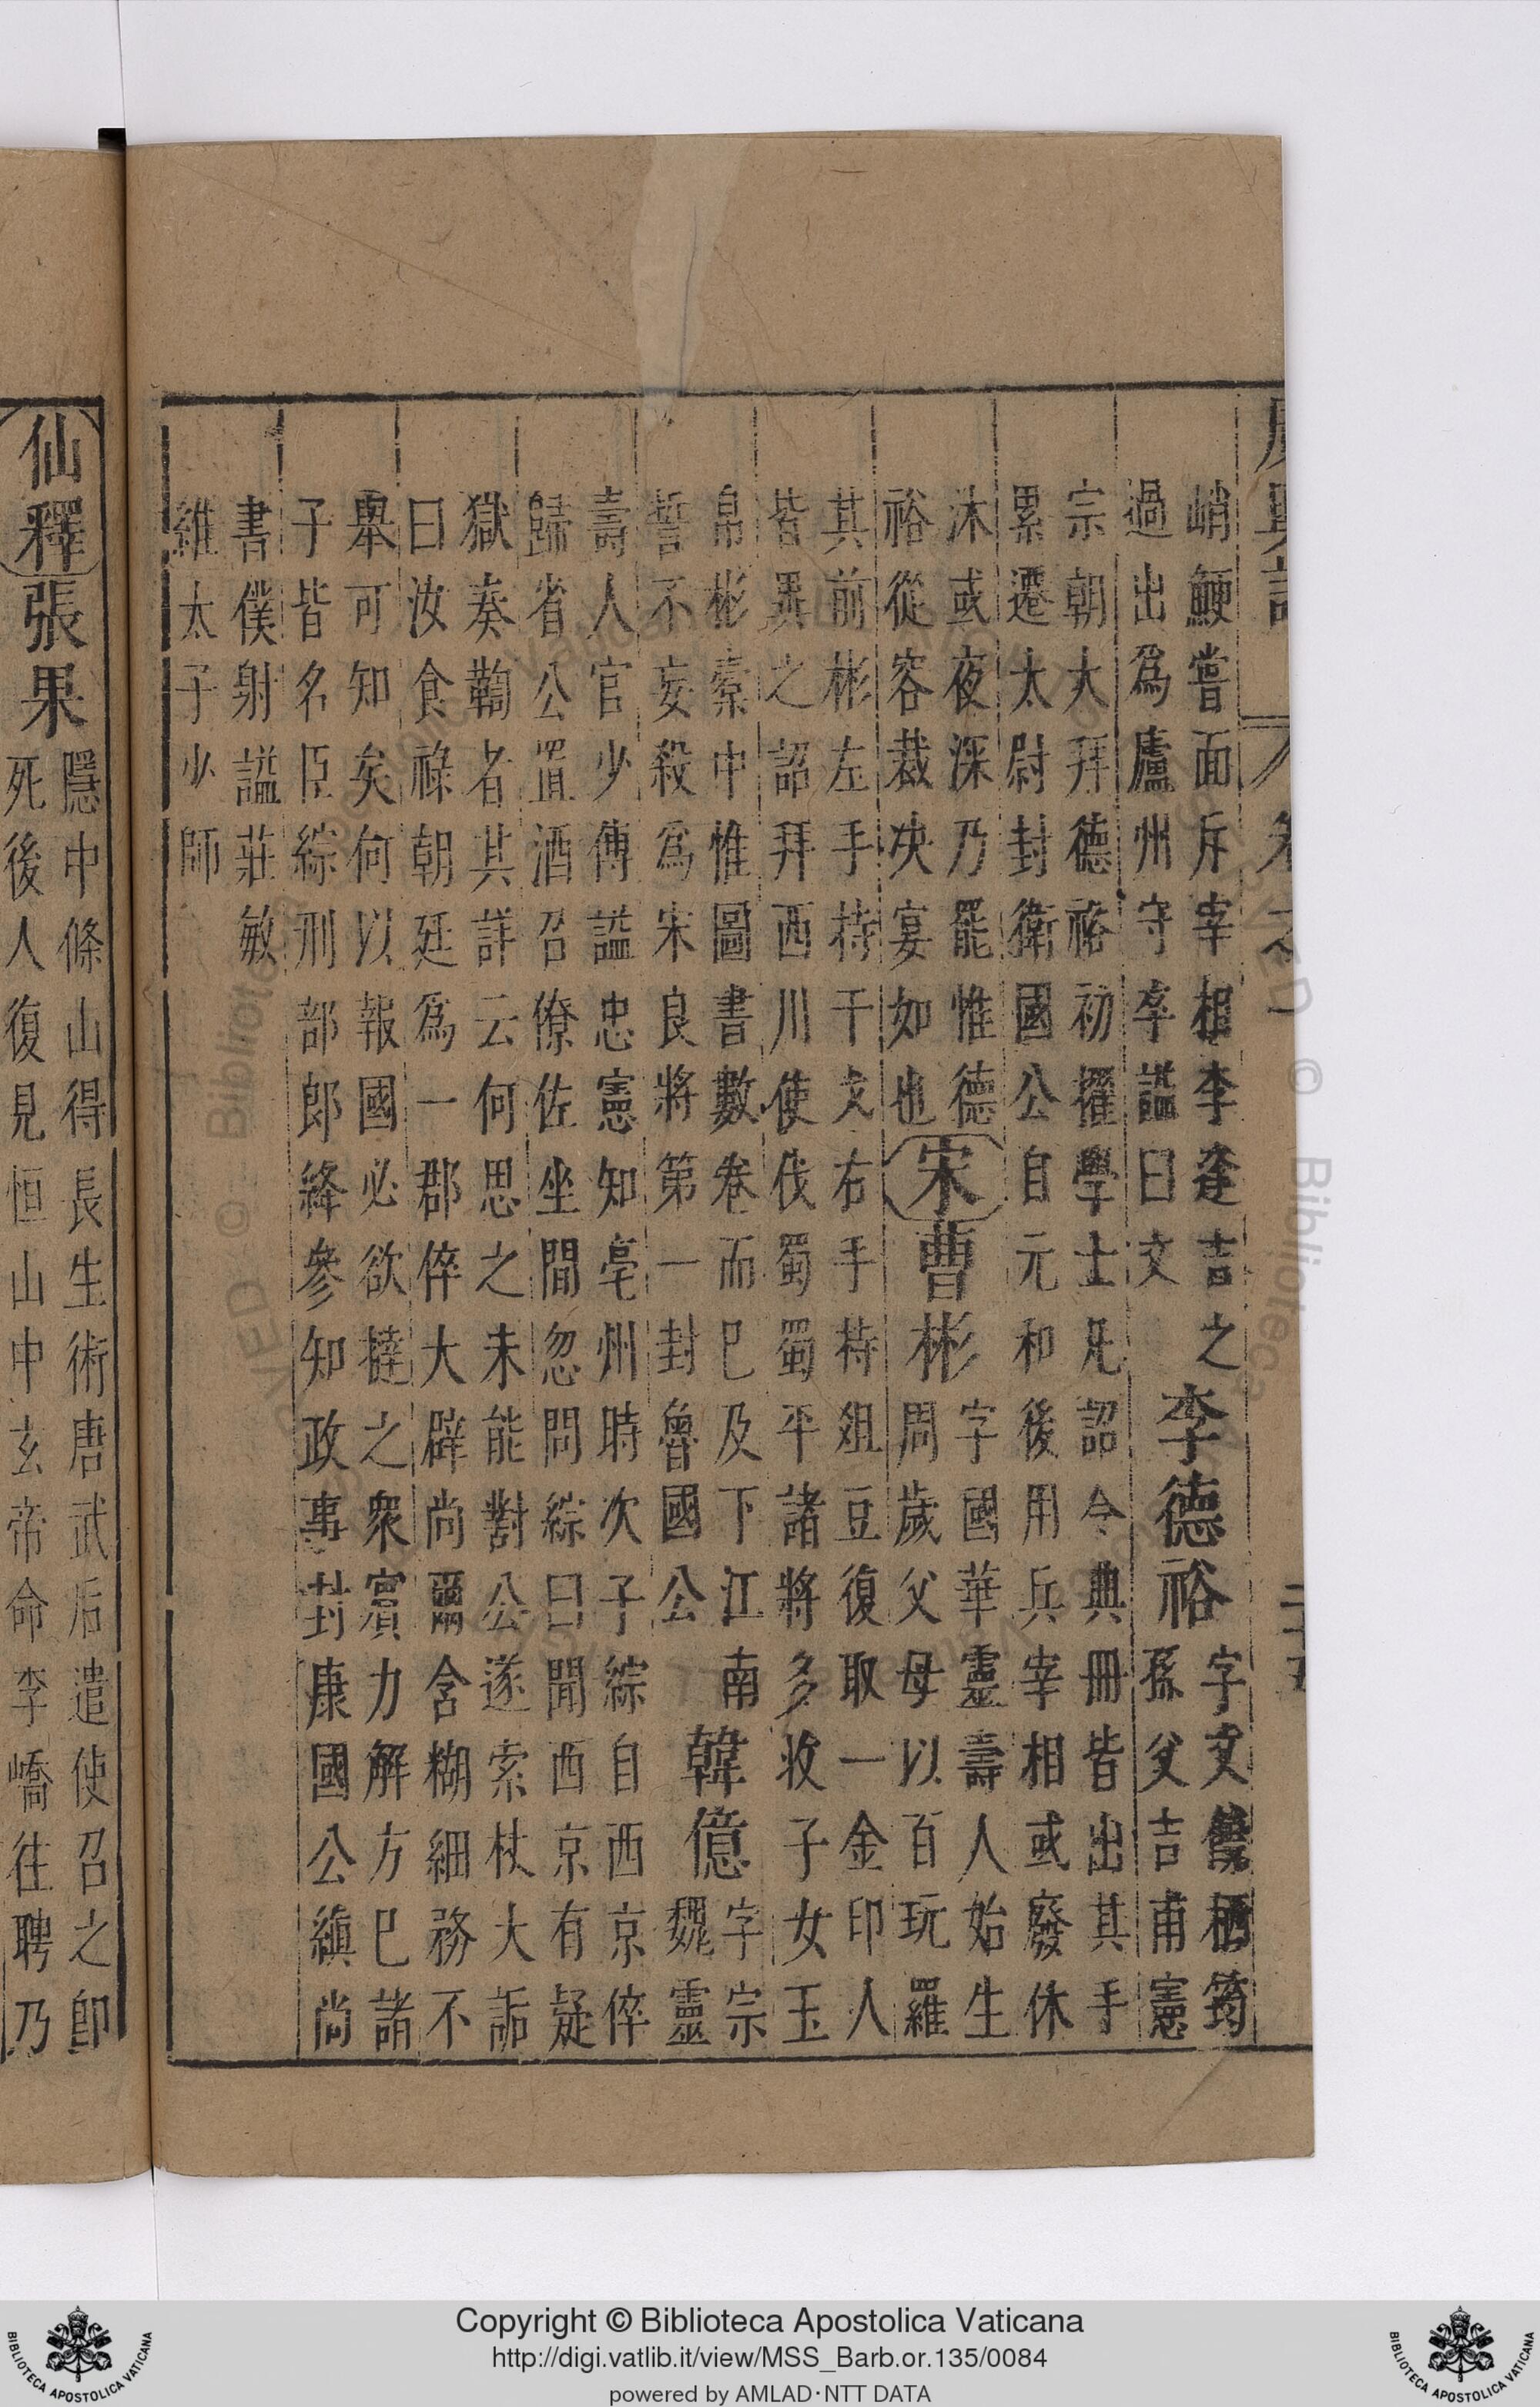 峭鯁嘗面斥宰相李逢吉之
過出爲廬州守卒謚曰文
李德裕
字文饒栖筠
孫父吉甫憲
宗朝大拜德裕初擢學士凡詔令典冊皆出其手
累遷太尉封衛國公自元和後用兵宰相或廢休
沐或夜深乃罷惟德
裕從容裁决宴如也
宋
曹彬
字國華靈壽人始生
周歲父母以百玩羅
其前彬左手持干戈右手持俎豆復取一金印人
皆異之詔拜西川使伐蜀蜀平諸將多收子女玉
帛彬橐中惟圖書數卷而已及下江南
誓不妄殺爲宋良將第一封魯國公
韓億
字宗
魏靈
壽人官少傅謚忠憲知亳州時次子綜自西京倅
歸省公置酒召僚佐坐間忽問綜曰聞西京有疑
獄奏讞者其詳云何思之未能對公遂索杖大詬
曰汝食祿朝廷爲一郡倅大辟尚爾含糊細務不
舉可知矣何以報國必欲撻之衆賓力解方已諸
子皆名臣綜刑部郎絳參知政事封康國公縝尚
書僕射謚莊敏
維太子少師
仙釋
張果
隱中條山得長生術唐武后遣使召之卽
死後人復見恒山中玄帝命李嶠往聘乃
Copyright © Biblioteca Apostolica Vaticana
http://digi.vatlib.it/view/MSS_Barb.or.135/0084
powered by AMLAD·NTT DATA
BIBLIOTECA APOSTOLICA VATICANA
BIBLIOTECA APOSTOLICA VATICANA